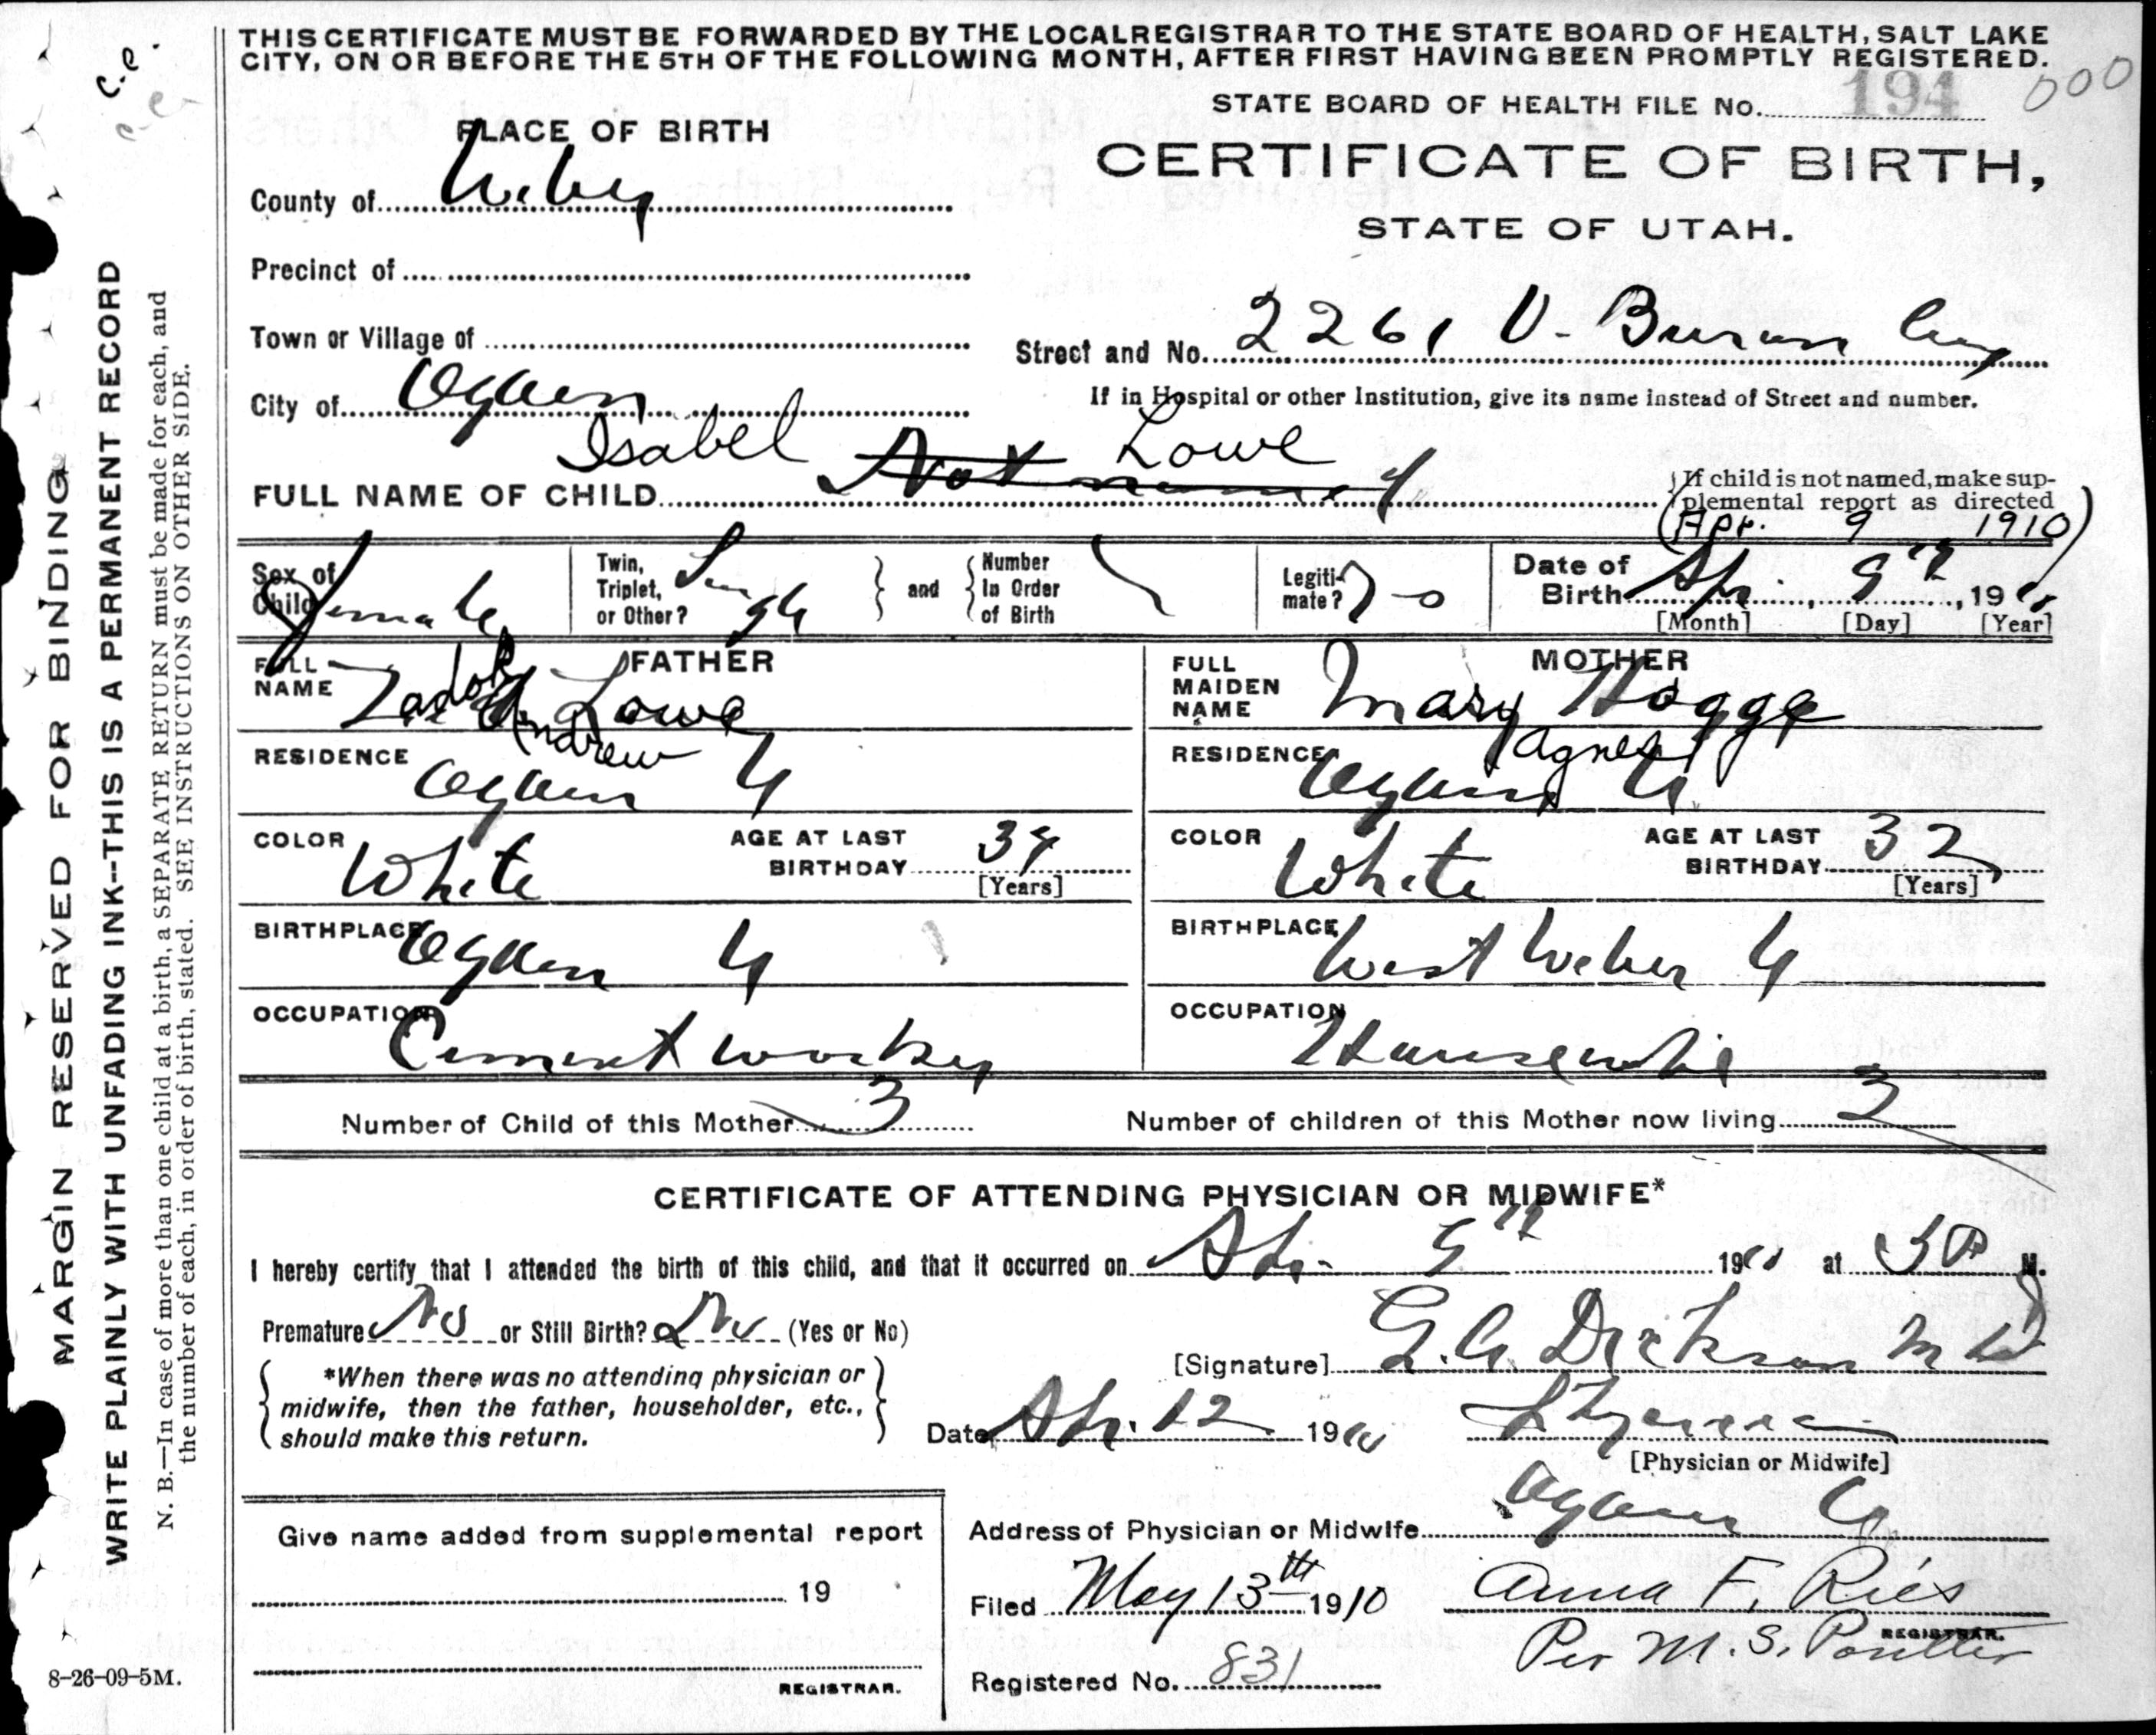 THIS CERTIFICATE MUST BE FORWARDED BY THE LOCAL REGISTRAR TO THE STATE BOARD OF HEALTH, SALT LAKE
CITY, ON OR BEFORE THE 5TH OF THE FOLLOWING MONTH, AFTER FIRST HAVING BEEN PROMPTLY REGISTERED.
STATE BOARD OF HEALTH FILE No. 194 000
PLACE OF BIRTH
CERTIFICATE OF BIRTH,
STATE OF UTAH.
County of
Precinct of
Town or Village of
Street and No. 2261 V. Buren
City of Ogden
If in Hospital or other Institution, give its name instead of Street and number.
Isabel Lowe
FULL NAME OF CHILD Not named
If child is not named, make sup-
plemental report as directed
(Apr. 9 1910)
Sex of Child Female
Twin, Triplet, or Other? Single
and
Number In Order of Birth
Legiti-mate?
Date of Birth Apr. 9th, 1910
[Month] [Day] [Year]
FATHER
FULL NAME Zadok Andrew Lowe
RESIDENCE Ogden U
COLOR White
AGE AT LAST BIRTHDAY 34
[Years]
BIRTHPLACE Ogden U
OCCUPATION Cement worker
MOTHER
FULL MAIDEN NAME Mary Agnes Hogge
RESIDENCE Ogden U
COLOR White
AGE AT LAST BIRTHDAY 32
[Years]
BIRTHPLACE West Weber U
OCCUPATION Housewife
Number of Child of this Mother 3
Number of children of this Mother now living 3
CERTIFICATE OF ATTENDING PHYSICIAN OR MIDWIFE*
I hereby certify that I attended the birth of this child, and that it occurred on Apr. 9th 1910 at P M.
Premature No or Still Birth? No (Yes or No)
*When there was no attending physician or
midwife, then the father, householder, etc.,
should make this return.
[Signature] Dickson M D
Date Apr. 12 1910
[Physician or Midwife]
Address of Physician or Midwife Ogden U
Give name added from supplemental report
19
REGISTRAR.
Filed May 13th 1910 Anna F. Ries
REGISTRAR.
Per M. S. Poulter
Registered No. 831
8-26-09-5M.
MARGIN RESERVED FOR BINDING
WRITE PLAINLY WITH UNFADING INK--THIS IS A PERMANENT RECORD
N. B.—In case of more than one child at a birth, a SEPARATE RETURN must be made for each, and
the number of each, in order of birth, stated. SEE INSTRUCTIONS ON OTHER SIDE.